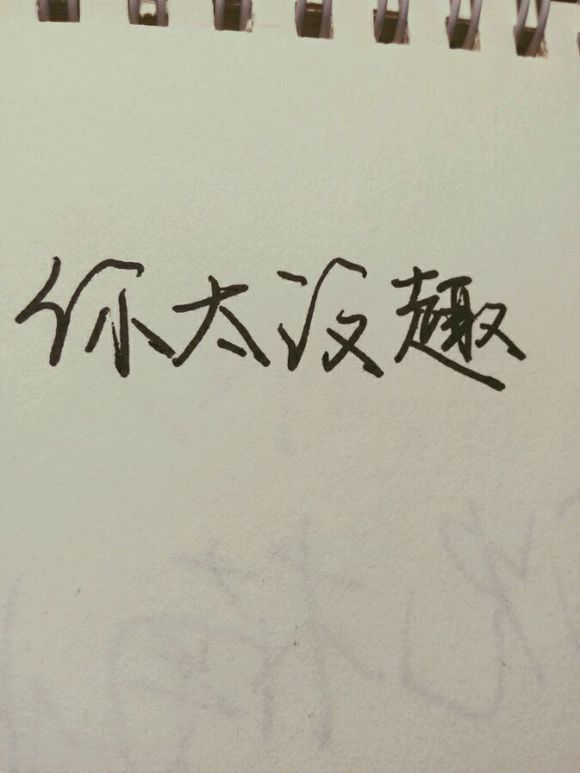 你太没趣